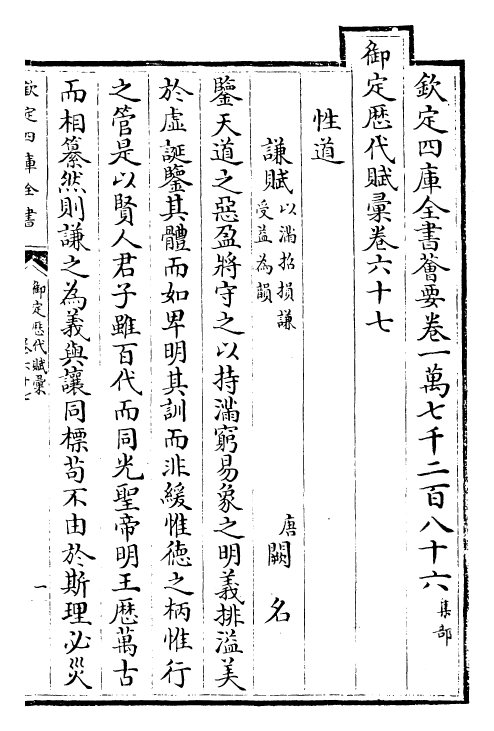 欽定四庫全書薈要卷一萬七千二百八十六 集部
御定歷代賦彙卷六十七
性道
謙賦 以滿招損謙受益為韻 唐 闕名
鑒天道之惡盈將守之以持滿窮易象之明義排溢美
於虛誕鑒其體而如卑明其訓而非緩惟徳之柄惟行
之管是以賢人君子雖百代而同光聖帝明王歴萬古
而相纂然則謙之為義與讓同標茍不由於斯理必災
欽定四庫全書
御定歷代賦彙
卷六十七
一